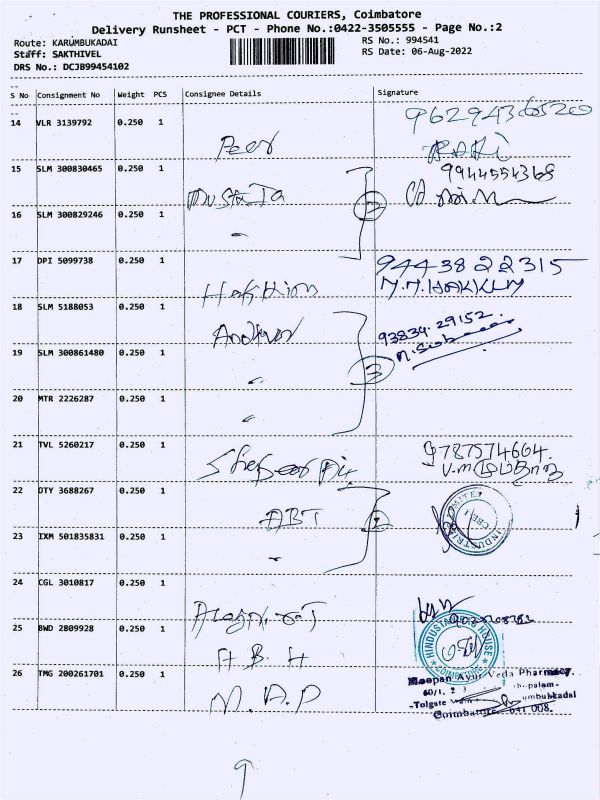 THE PROFESSIONAL COURIERS, Coimbatore
Delivery Runsheet - PCT - Phone No.:0422-3505555 - Page No.:2
Route: KARUMBUKADAI
RS No.: 994541
Staff: SAKTHIVEL
RS Date: 06-Aug-2022
DRS No.: DCJB99454102
S No Consignment No Weight PCS Consignee Details Signature
14 VLR 3139792 0.250 1 9629436520
Peer
15 SLM 300830465 0.250 1 9944554368
Mustafa
16 SLM 300829246 0.250 1
17 DPI 5099738 0.250 1 9443822315
M.M.HAKKIM
18 SLM 5188053 0.250 1 93834.29152
19 SLM 300861480 0.250 1
3
20 MTR 2226287 0.250 1
21 TVL 5260217 0.250 1 9787574664.
22 DTY 3688267 0.250 1
ABT
23 IXM 501835831 0.250 1
24 CGL 3010817 0.250 1
25 BWD 2809928 0.250 1
H.B.H
HINDUSTAN HOUSE
COIMBATORE
26 TMG 200261701 0.250 1 Meepan Ayur Veda Pharmacy,
M.A.P
60/1.
-Tolgate
Coimbatore 641 008.